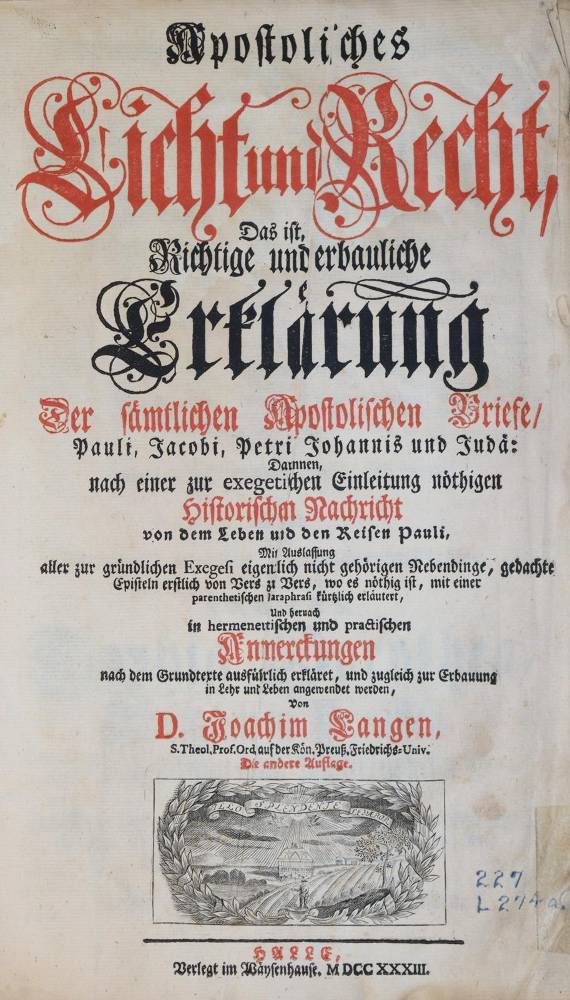 Apostolisches
Licht und Recht,
Das ist,
Richtige und erbauliche
Erklärung
Der sämtlichen Apostolischen Briefe/
Pauli, Jacobi, Petri Johannis und Judä:
Darinnen,
nach einer zur exegetischen Einleitung nöthigen
Historischen Nachricht
von dem Leben und den Reisen Pauli,
Mit Auslassung
aller zur gründlichen Exegesi eigentlich nicht gehörigen Nebendinge, gedachte
Episteln erstlich von Vers zu Vers, wo es nöthig ist, mit einer
parenthetischen paraphrasi kürtzlich erläutert,
Und hernach
in hermenevtischen und practischen
Anmerckungen
nach dem Grundtexte ausführlich erkläret, und zugleich zur Erbauung
in Lehr und Leben angewendet werden,
Von
D. Joachim Langen,
S. Theol. Prof. Ord. auf der Kön. Preuß. Friedrichs-Univ.
Die andere Auflage.
ILLO SPLENDENTE LEVABOR
227
L 274a
HALLE,
Verlegt im Wäysenhause. M DCC XXXIII.